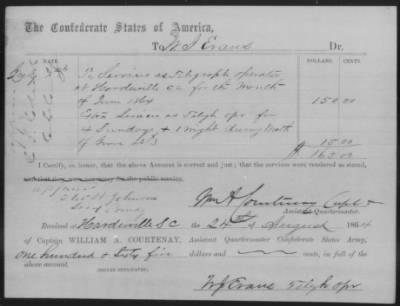 The Confederate States of America,
To W J Evans Dr.
DATE DOLLARS. CENTS.
To Services as Telegraph operator
at Hardeeville SC for the Month
of June 1864 150.00
Extra Services as Telgh opr for
4 Sundays & 1 night during Month
of June 15.00
$ 165.00
I Certify, on honor, that the above Account is correct and just; that the services were rendered as stated,
approved
Wm A Courtenay Capt &
Assistant Quartermaster.
Received at Hardeeville SC the 24 of August 1864
of Captain WILLIAM A. COURTENAY, Assistant Quartermaster Confederate States Army,
One hundred & Sixty five dollars and cents, in full of the
above account.
(SIGNED DUPLICATES)
W J Evans Telgh opr